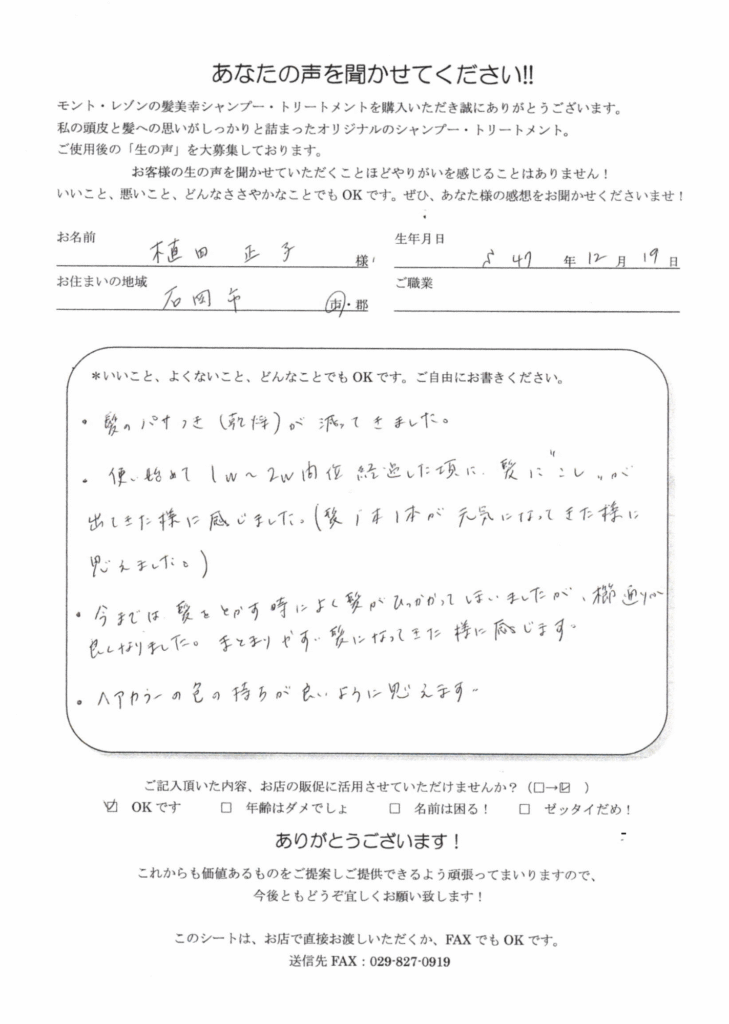 あなたの声を聞かせてください!!
モント・レゾンの髪美幸シャンプー・トリートメントを購入いただき誠にありがとうございます。
私の頭皮と髪への思いがしっかりと詰まったオリジナルのシャンプー・トリートメント。
ご使用後の「生の声」を大募集しております。
お客様の生の声を聞かせていただくことほどやりがいを感じることはありません！
いいこと、悪いこと、どんなささやかなことでも OK です。ぜひ、あなた様の感想をお聞かせくださいませ！
お名前 植田 正子 様
生年月日 S 47 年 12 月 19 日
お住まいの地域 石岡市 市・郡
ご職業
＊いいこと、よくないこと、どんなことでも OK です。ご自由にお書きください。
・髪のパサつき（乾燥）が減ってきました。
・使い始めて 1w〜2w間位 経過した頃に、髪に"こし"が
出てきた様に感じました。（髪1本1本が元気になってきた様に
思えました。）
・今までは髪をとかす時によく髪がひっかかってしまいましたが、櫛通りが
良くなりました。まとまりやすい髪になってきた様に感じます。
・ヘアカラーの色の持ちが良いように思えます。
ご記入頂いた内容、お店の販促に活用させていただけませんか？（□→☑ ）
☑ OK です □ 年齢はダメでしょ □ 名前は困る！ □ ゼッタイだめ！
ありがとうございます！
これからも価値あるものをご提案しご提供できるよう頑張ってまいりますので、
今後ともどうぞ宜しくお願い致します！
このシートは、お店で直接お渡しいただくか、FAX でも OK です。
送信先 FAX：029-827-0919